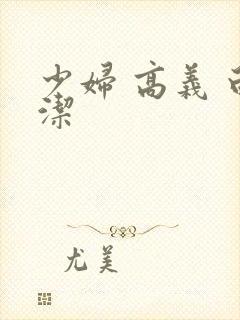 少婦 高義
潔
尤美